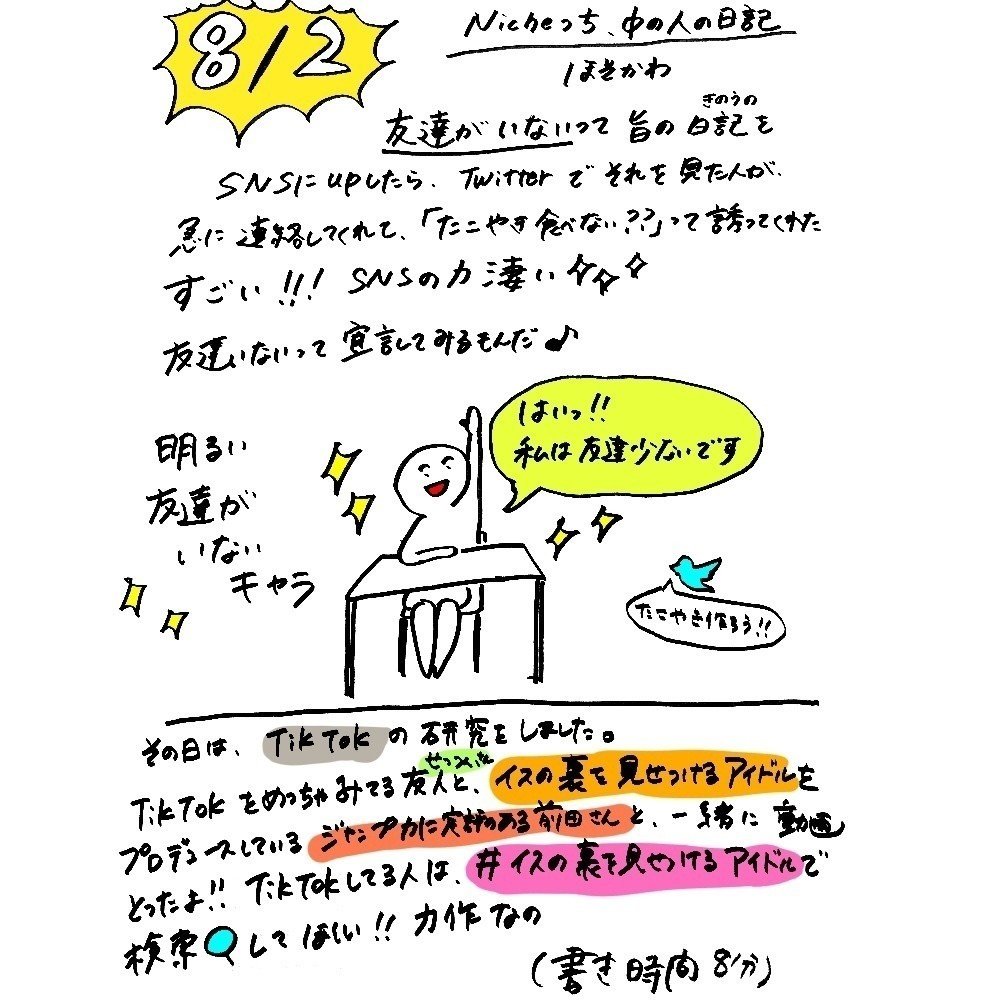 8/2
Nicheっち、中の人の日記
ほそかわ
きのうの
友達がいないって旨の日記を
SNSにupしたら、Twitterでそれを見た人が、
急に連絡してくれて、「たこやき食べない??」って誘ってくれた
すごい!!! SNSの力凄い
友達いないって宣言してみるもんだ♪
はいっ!!
私は友達少ないです
明るい
友達が
いない
キャラ
たこやき作ろう!!
その日は、TikTokの研究をしました。
TikTokをめっちゃみてる友人と、イスの裏を見せつけるアイドルを
プロデュースしているジャンプ力に定評のある前田さんと、一緒に動画
とったよ!! TikTokしてる人は、#イスの裏を見せつけるアイドルで
検索してほしい!! 力作なの
(書き時間 8分)